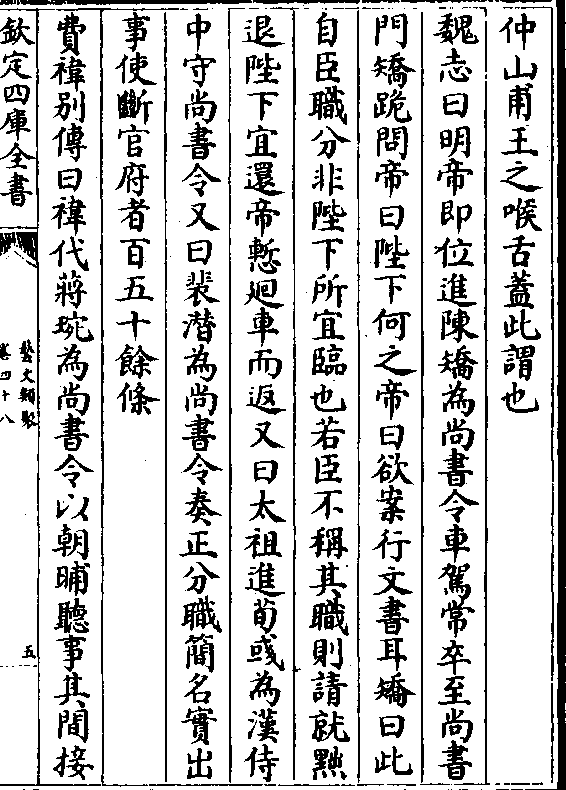 仲山甫王之喉舌蓋此謂也
魏志曰明帝即位進陳矯為尚書令車駕常卒至尚書
門矯跪問帝曰陛下何之帝曰欲案行文書耳矯曰此
自臣職分非陛下所宜臨也若臣不稱其職則請就黜
退陛下宜還帝慙廻車而返又曰太祖進荀彧為漢侍
中守尚書令又曰裴潛為尚書令奏正分職簡名實出
事使斷官府者百五十餘條
費禕别傳曰禕代蔣琬為尚書令以朝晡聽事其間接
欽定四庫全書
藝文類聚
卷四十八
五